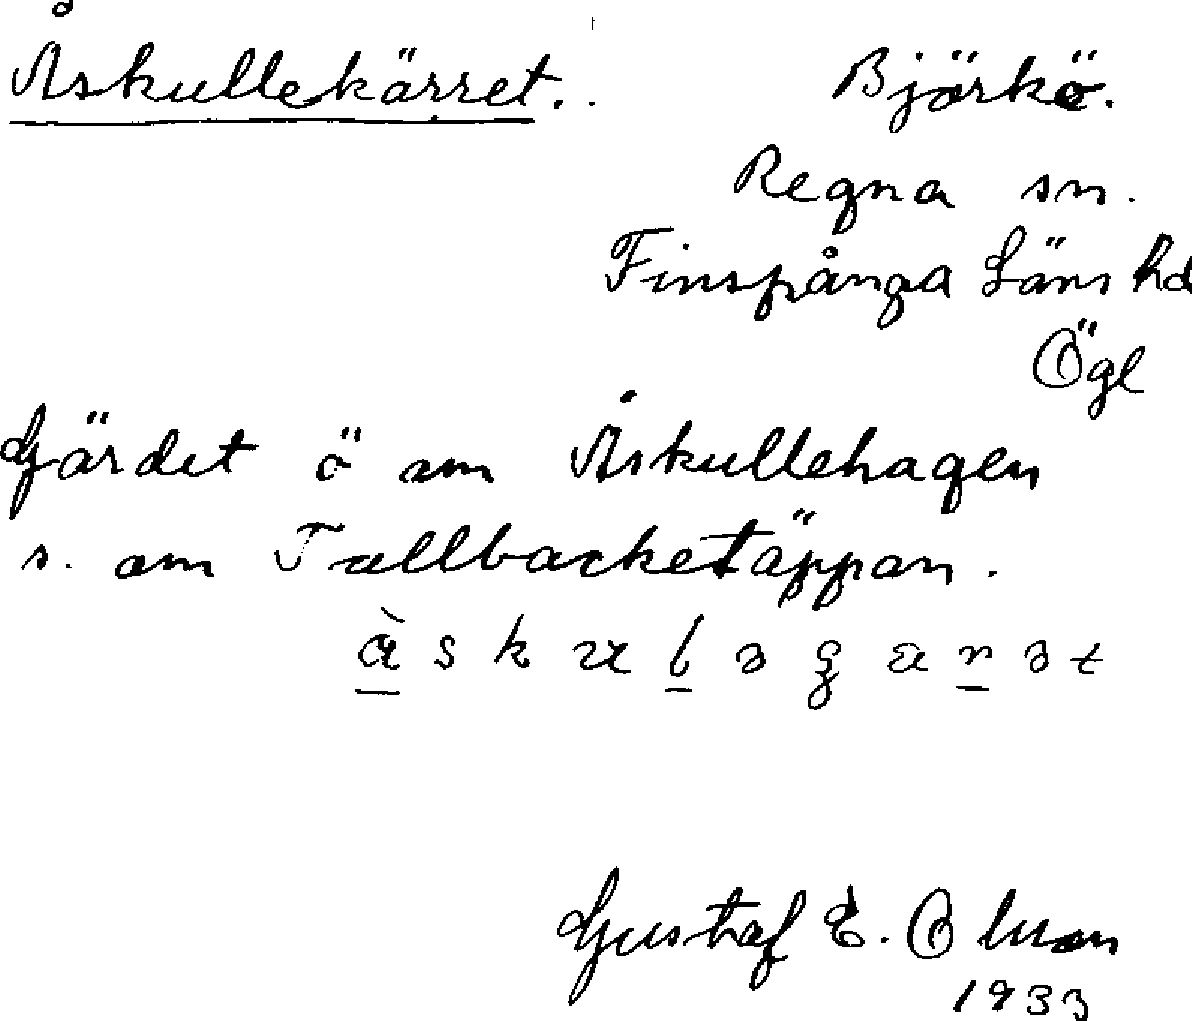 Åskullekärret.
Björkö.
Regna sn.
Finspånga Läns hd
Ögl
Gärdet ö om Åskullehagen
s. om Tallbacketäppan.
Gustaf E.
1933